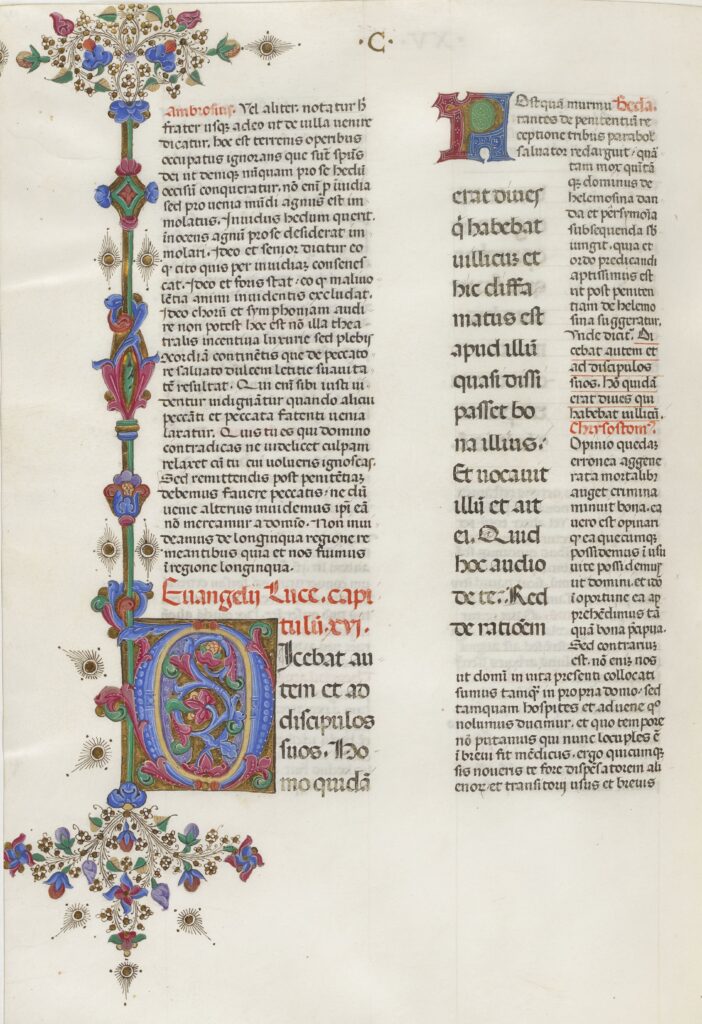 ·C·
Ambrosius. Vel aliter. notatur hͦ
frater usq; adeo ut de uilla uenire
dicatur. hoc est terrenis operibus
occupatus ignorans que sunt spūs
dei ut deniq; nūquam pro se hedum
occisū conqueratur. nō enī p iuidia
sed pro uenia mūdi agnus est im
molatus. Inuidus hedum querit.
inocens agnū pro se desiderat im
molari. Ideo et senior dicitur eo
ꝙ cito quis per inuidiaꝫ consenes
cat. Ideo et foris stat. eo ꝙ maliuo
lētia animi inuidentis excludat.
Ideo chorū et symphoniam audi
re non potest hoc est nō illa thea
tralis incentiua luxurie sed plebis
ꝯcordiā cōtinētis que de peccato
re saluato dulcem letitie suauita
tē resultat. Qui enī sibi iusti ui
dentur indignātur quando alicui
peccāti et peccata fatenti uenia
laratur. Quis tu es qui domino
contradicas ne iudelicet culpam
relaxet cū tu cui uolueris ignoscas.
Sed remittendis post penitētiaꝫ
debemus fauere peccatis. ne dū
uenie alterius inuidemus ipī eā
nō mereamur a domīo. Non inui
deamus de longinqua regione re
meantibus quia et nos fuimus
ī regione longinqua.
Euangelij Luce. capi
tulū. xvi.
Dicebat au
tem et ad
discipulos
suos. Ho
mo quidā
erat diues
q̄ habebat
uillicū et
hic diffa
matus est
apud illū
quasi dissi
passet bo
na illius.
Et uocauit
illū et ait
ei. Quid
hoc audio
de te. Red
de ratiōem
Postquā murmu Beda.
rantes de penitentiū re
ceptione tribus parabol
saluator redarguit. quā
tam mox quītā
ꝙ dominus de
helemosina dan
da et persymoīa
subsequenda sb
iungit. quia et
ordo predicandi
aptissimus est
ut post peniten
tiam de helemo
sina suggeratur.
Vnde dicit. Di
cebat autem et
ad discipulos
suos. Hō quidā
erat diues qui
habebat uillicū.
Chrysostomꝰ.
Opinio quedaꝫ
erronea aggene
rata mortalibꝰ
auget crimina
minuit bona. ea
uero est opinari
ꝙ ea quecumq;
possidemus ī usu
uite possidemus
ut domini. et iō
ī oportune ea ap
prehēdimus tā
quā bona p̄cipua.
Sed contrariuꝫ
est. nō enī nos
ut domī in uita presenti collocati
sumus tamꝙ in propria domo. sed
tamquam hospites et aduene qͦ
nolumus ducimur. et quo tempore
nō putamus qui nunc locuples ē
ī breui fit mēdicus. ergo quicumq;
sis noueris te fore dispēsatorem ali
enoꝝ. et transitorij usus et breuis